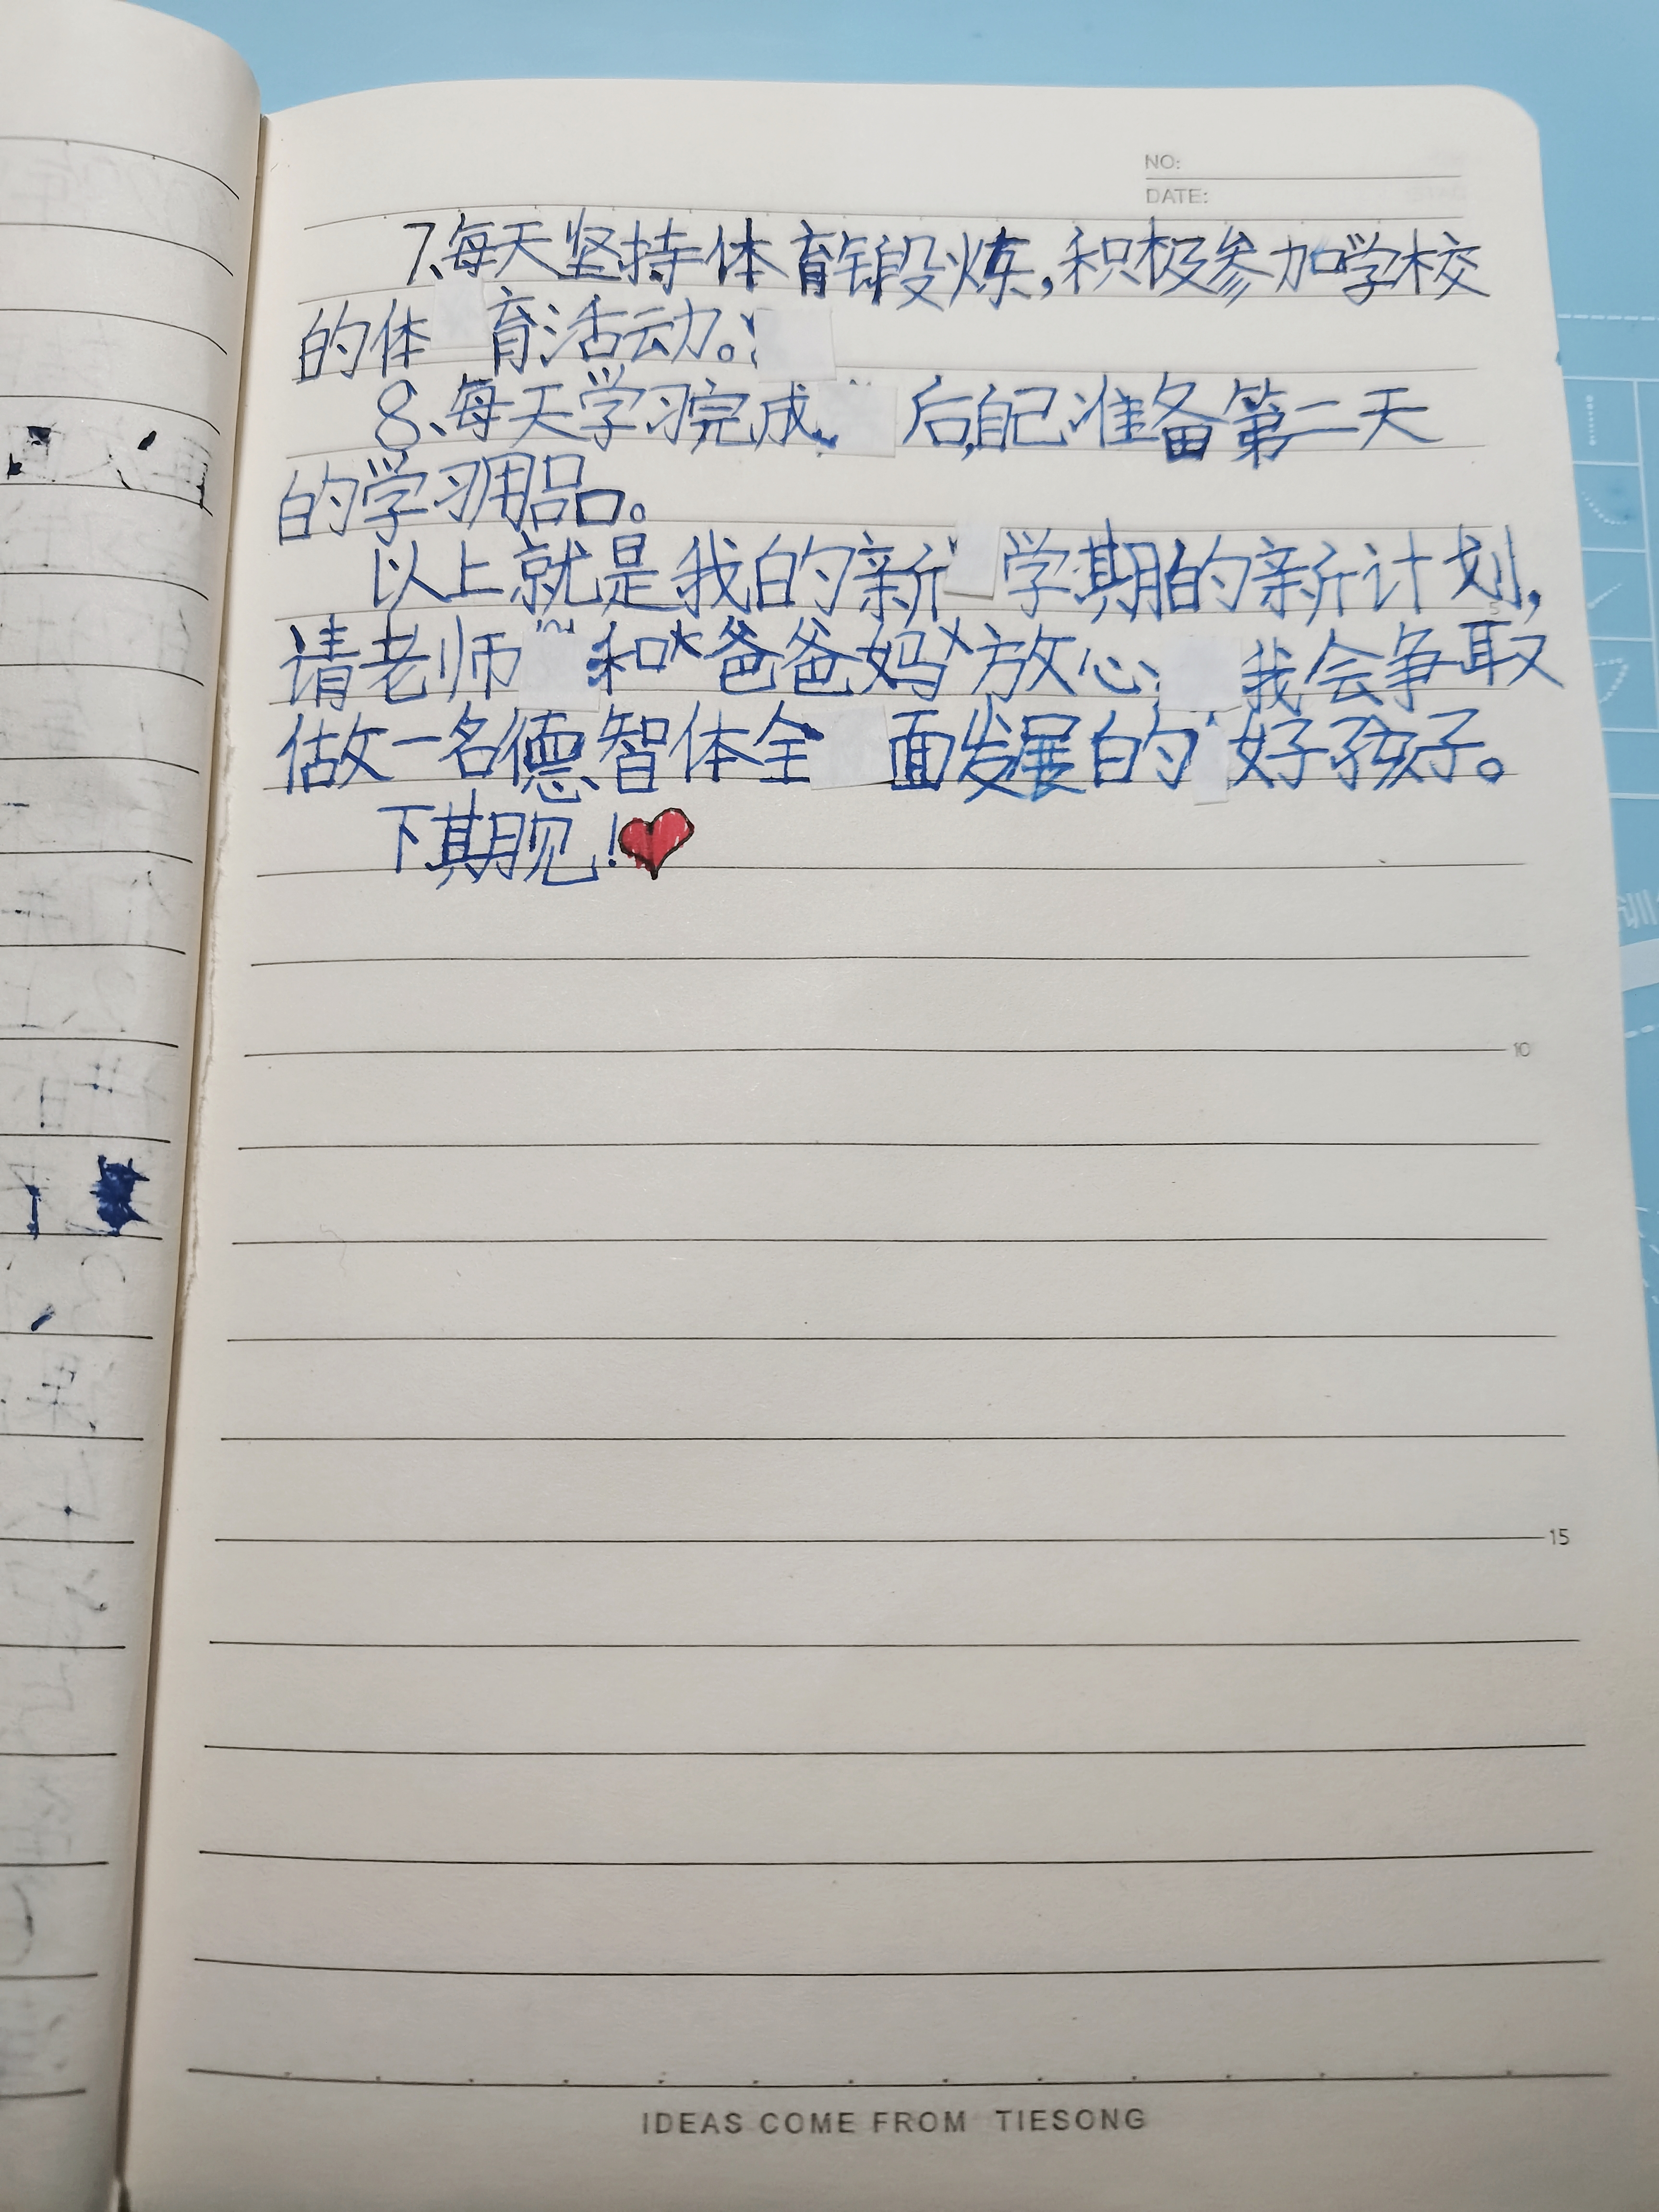 NO:
DATE:
7、每天坚持体育锻炼,积极参加学校
的体育活动。
8、每天学习完成后,自己准备第二天
的学习用品。
以上就是我的新学期的新计划,
请老师和爸爸妈放心,我会争取
做一名德、智体全面发展的好孩子。
下期见!
10
15
IDEAS COME FROM TIESONG